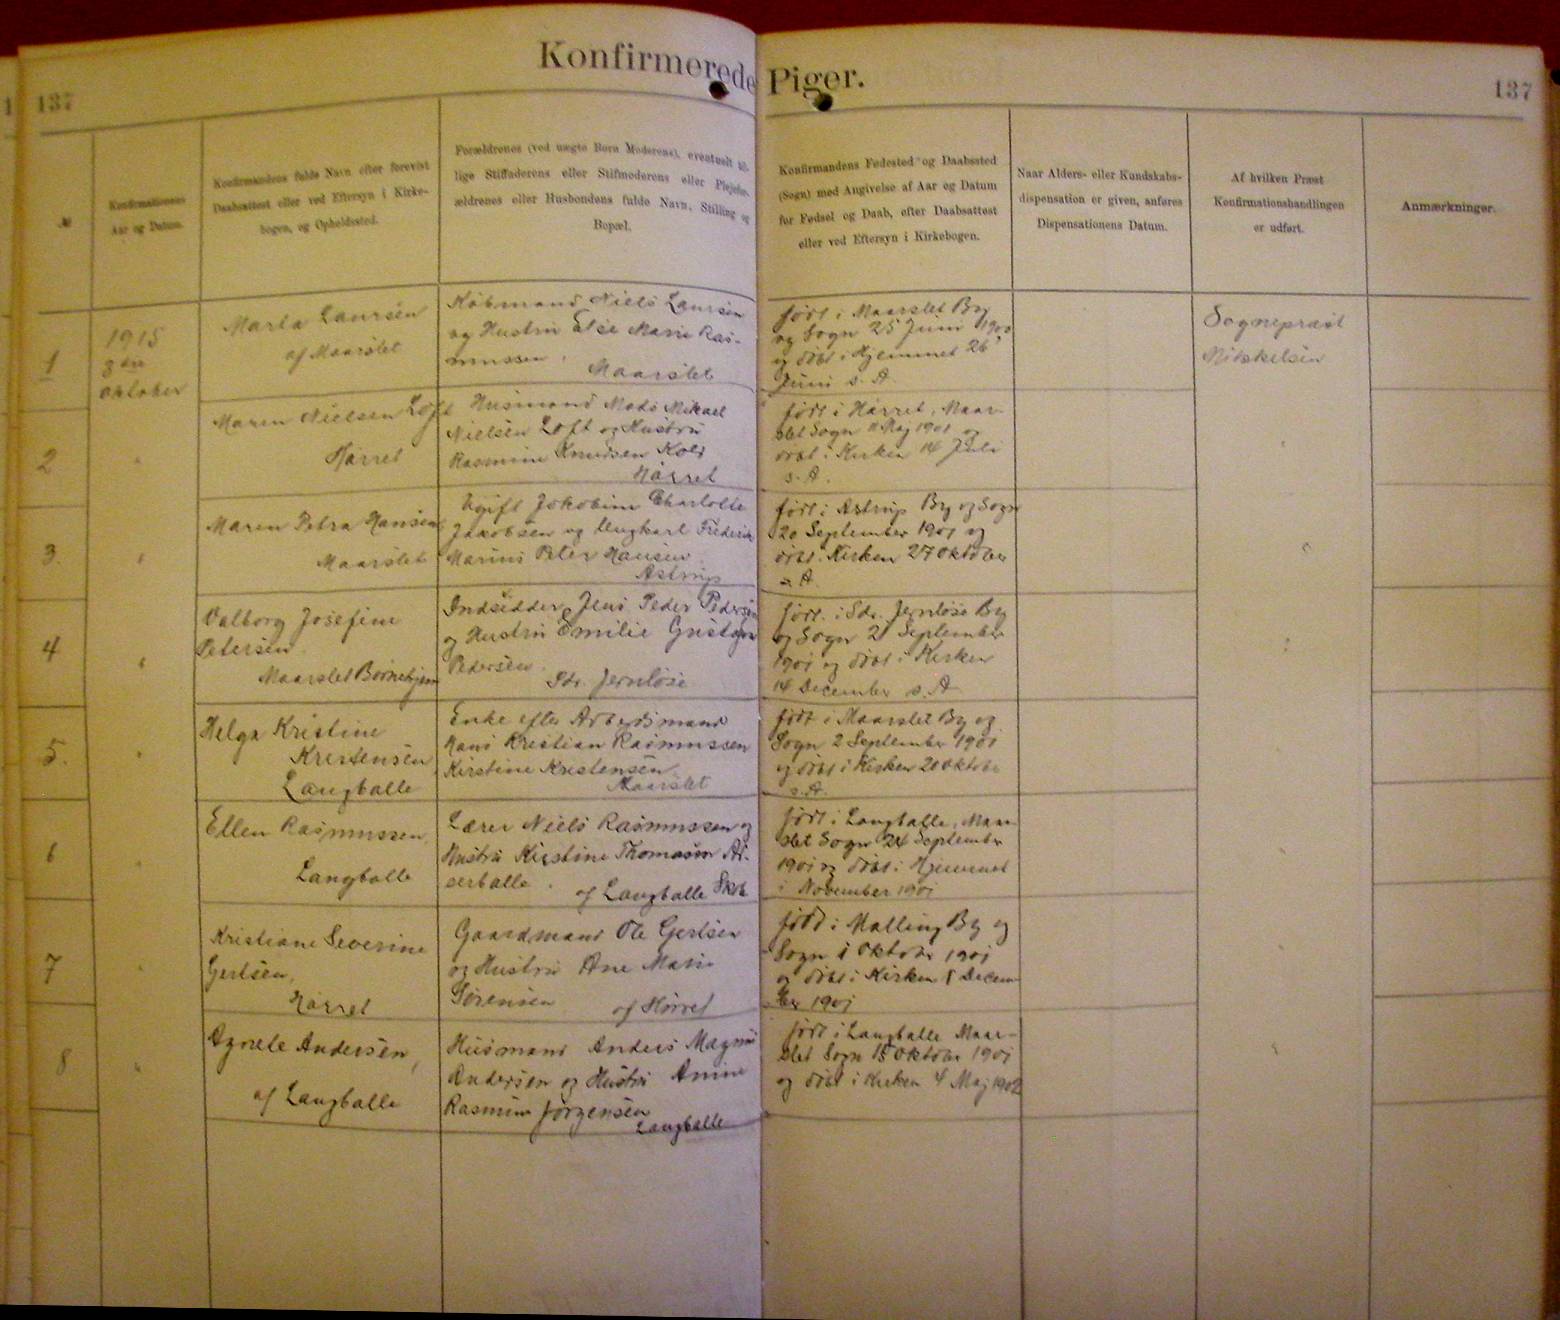 Konfirmerede Piger.
137
137
№
Konfirmationens
Aar og Datum.
Konfirmandens fulde Navn efter forevist
Daabsattest eller ved Eftersyn i Kirke-
bogen, og Opholdssted.
Forældrenes (ved uægte Børn Moderens), eventuelt til-
lige Stiffaderens eller Stifmoderens eller Plejefor-
ældrenes eller Husbondens fulde Navn, Stilling og
Bopæl.
Konfirmandens Fødested og Daabssted
(Sogn) med Angivelse af Aar og Datum
for Fødsel og Daab, efter Daabsattest
eller ved Eftersyn i Kirkebogen.
Naar Alders- eller Kundskabs-
dispensation er given, anføres
Dispensationens Datum.
Af hvilken Præst
Konfirmationshandlingen
er udført.
Anmærkninger.
1
1915
3 die
Oktober
Marta Laursen
af Maarslet
Købmand Niels Laursen
og Hustru Else Marie Ras-
mussen,
Maarslet
født i Maarslet By
og Sogn 25 Juni 1900
og døbt i Hjemmet 26
Juni s. A.
Sognepræst
Mikkelsen
2
"
Maren Nielsen Loft
Hørret
Husmand Mads Mikael
Nielsen Loft og Hustru
Rasmine Knudsen Kold
Hørret
født i Hørret, Maar-
slet Sogn 11 Maj 1901 og
døbt i Kirken 14 Juli
s. A.
3.
"
Maren Petra Hansen
Maarslet
Ugift Jakobine Charlotte
Jakobsen og Ungkarl Frederik
Marius Peter Hansen
Astrup
født i Astrup By og Sogn
20 September 1901 og
døbt i Kirken 27 Oktober
s. A.
4
"
Valborg Josefine
Petersen.
Maarslet Børnehjem
Indsidder Jens Peder Pedersen
og Hustru Emilie Gustava
Pedersen.
Sdr. Jernløse
født i Sdr. Jernløse By
og Sogn 21 September
1901 og døbt i Kirken
14 December s. A.
5.
"
Helga Kristine
Kristensen,
Langballe
Enke efter Arbejdsmand
Hans Kristian Rasmussen
Kirstine Kristensen
Maarslet
født i Maarslet By og
Sogn 2 September 1901
og døbt i Kirken 20 Oktober
s. A.
6
"
Ellen Rasmussen,
Langballe
Lærer Niels Rasmussen og
Hustru Kirstine Thomasen As-
serballe.
af Langballe Skole
født i Langballe, Maar-
slet Sogn 24 September
1901 og døbt i Hjemmet
1 November 1901
7
"
Kristiane Severine
Gertsen,
Hørret
Gaardmand Ole Gertsen
og Hustru Ane Marie
Sørensen
af Hørret
født i Malling By og
Sogn 1 Oktober 1901
og døbt i Kirken 8 Decem-
ber 1901
8
"
Agnete Andersen,
af Langballe
Husmand Anders Magnus
Andersen og Hustru Amine
Rasmine Jørgensen
Langballe
født i Langballe Maar-
slet Sogn 15 Oktober 1901
og døbt i Kirken 4 Maj 1902